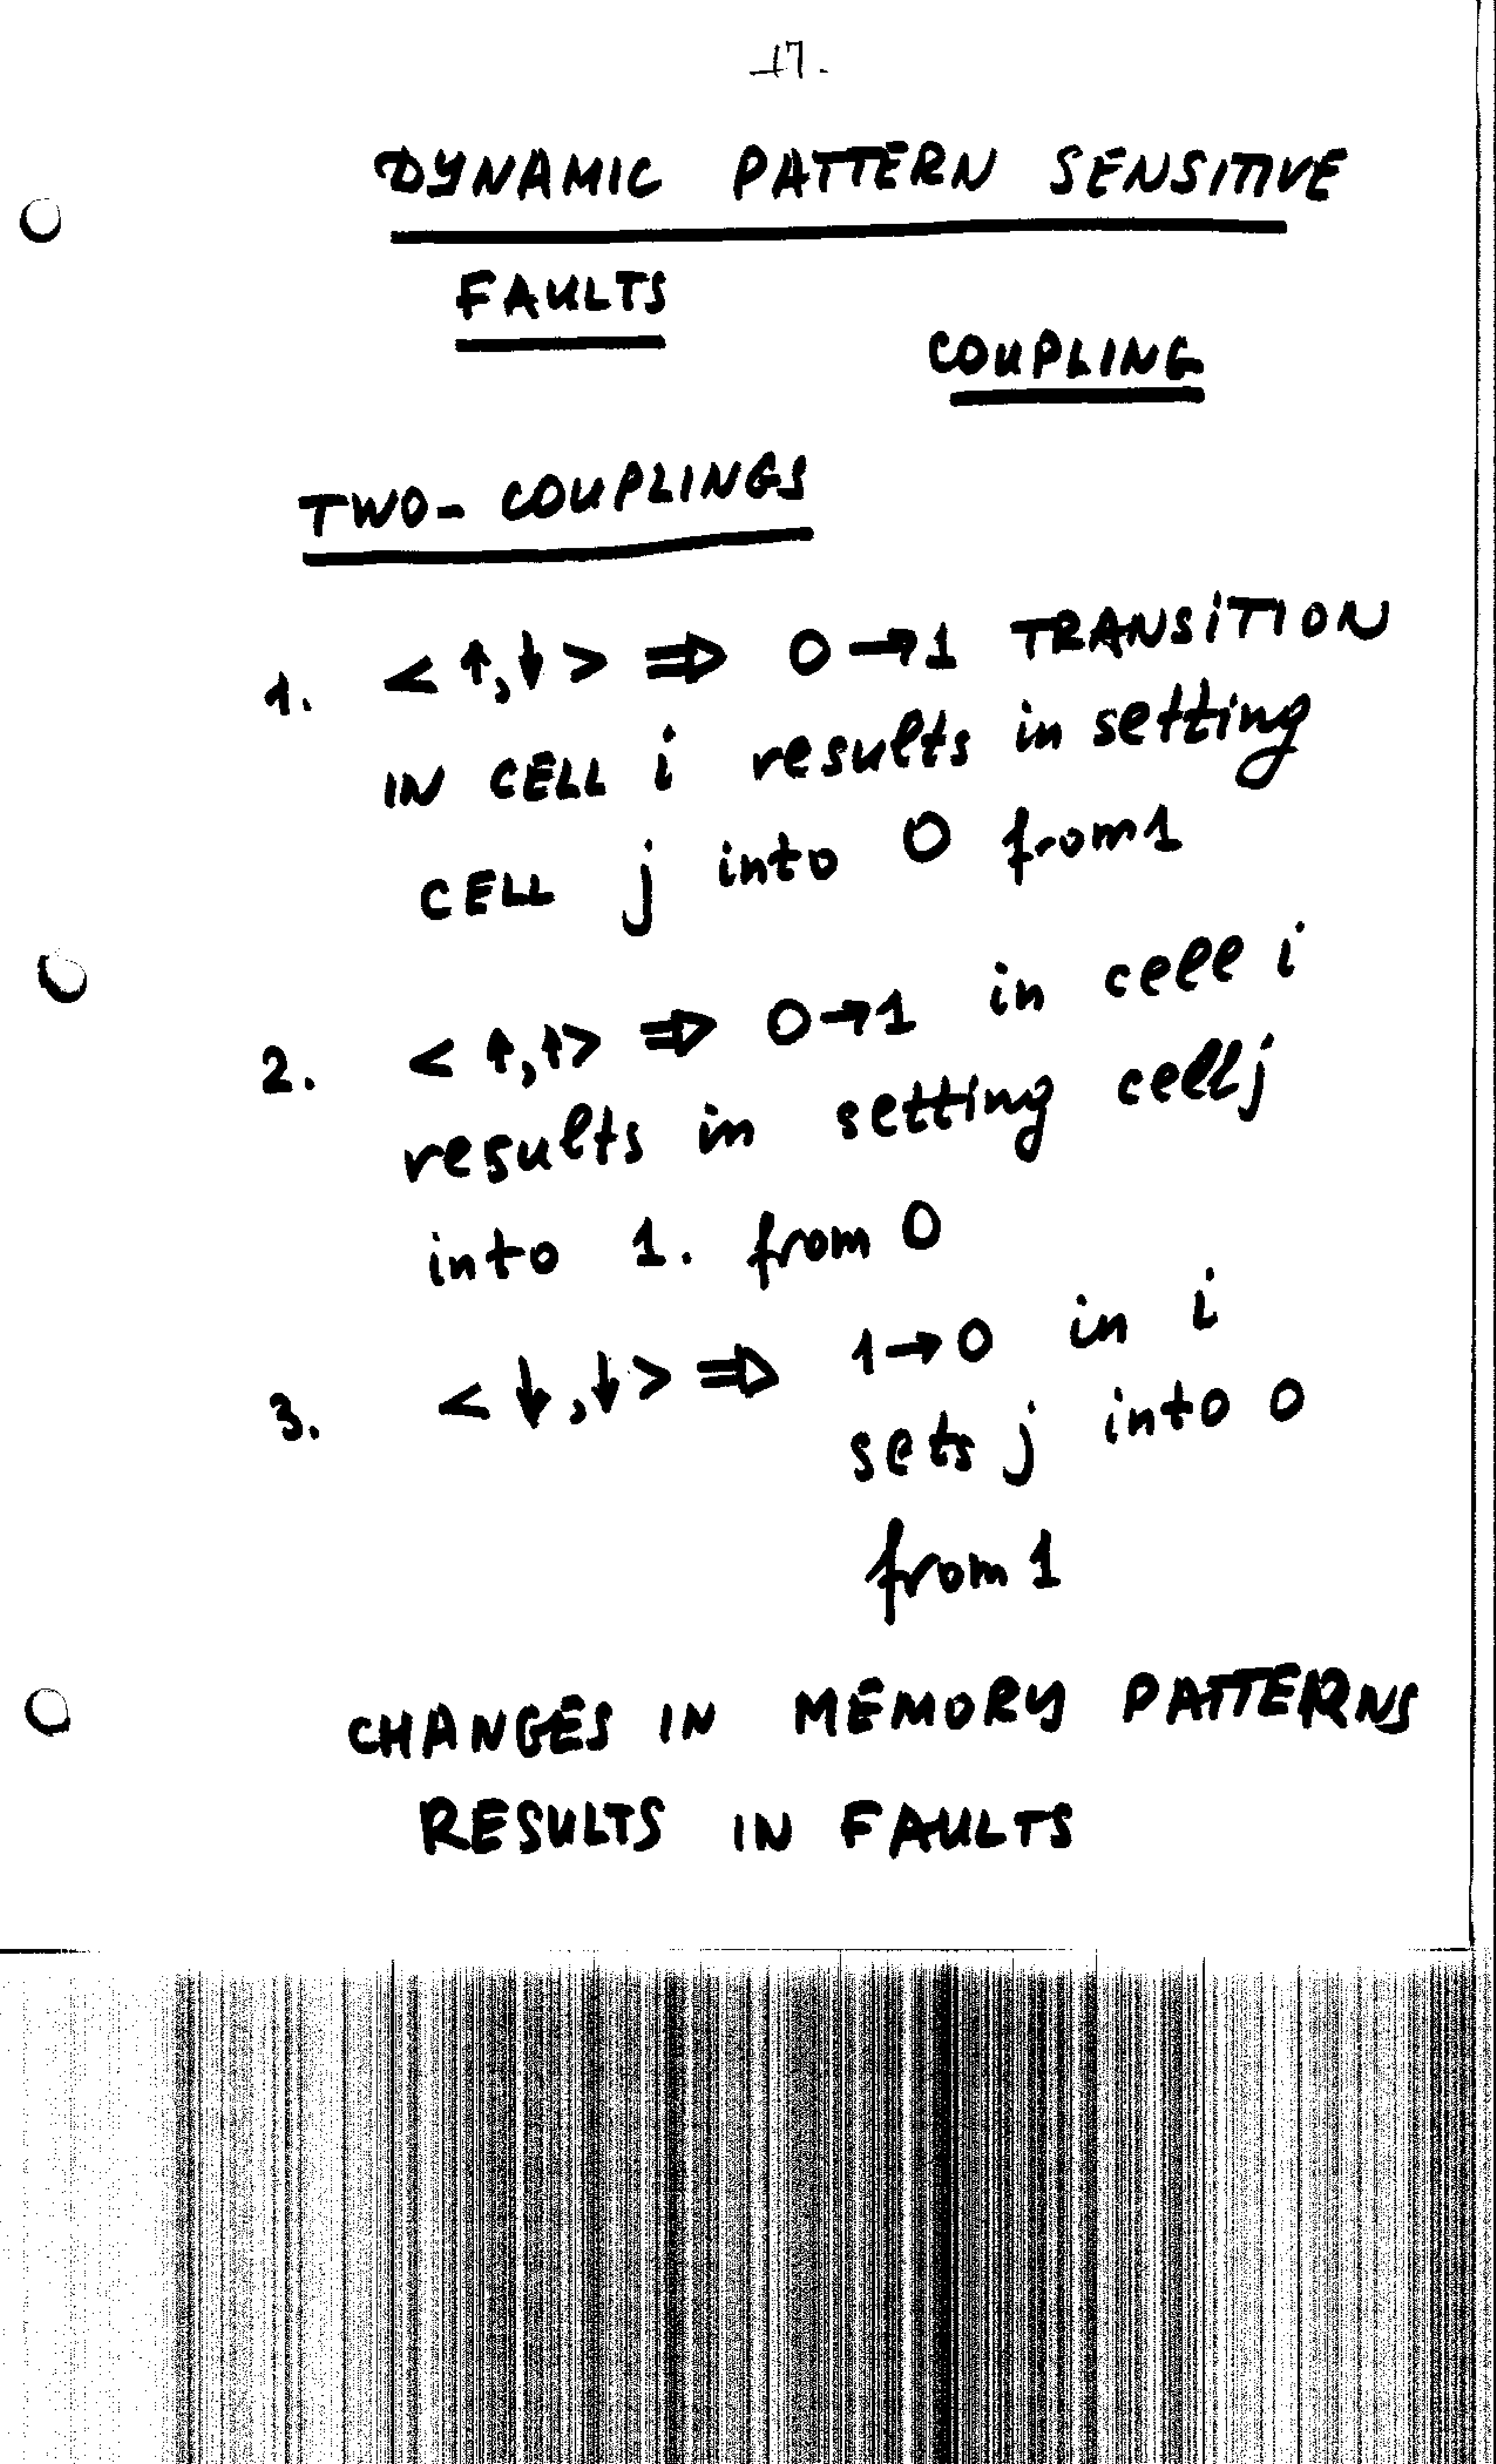 -17-
DYNAMIC PATTERN SENSITIVE
FAULTS
COUPLING
TWO- COUPLINGS
1. < ↑,↓ > ⇒ 0→1 TRANSITION
IN CELL i results in setting
CELL j into 0 from 1
2. < ↑,↑> ⇒ 0→1 in cell i
results in setting cell j
into 1. from 0
3. < ↓,↓ > ⇒ 1→0 in i
sets j into 0
from 1
CHANGES IN MEMORY PATTERNS
RESULTS IN FAULTS